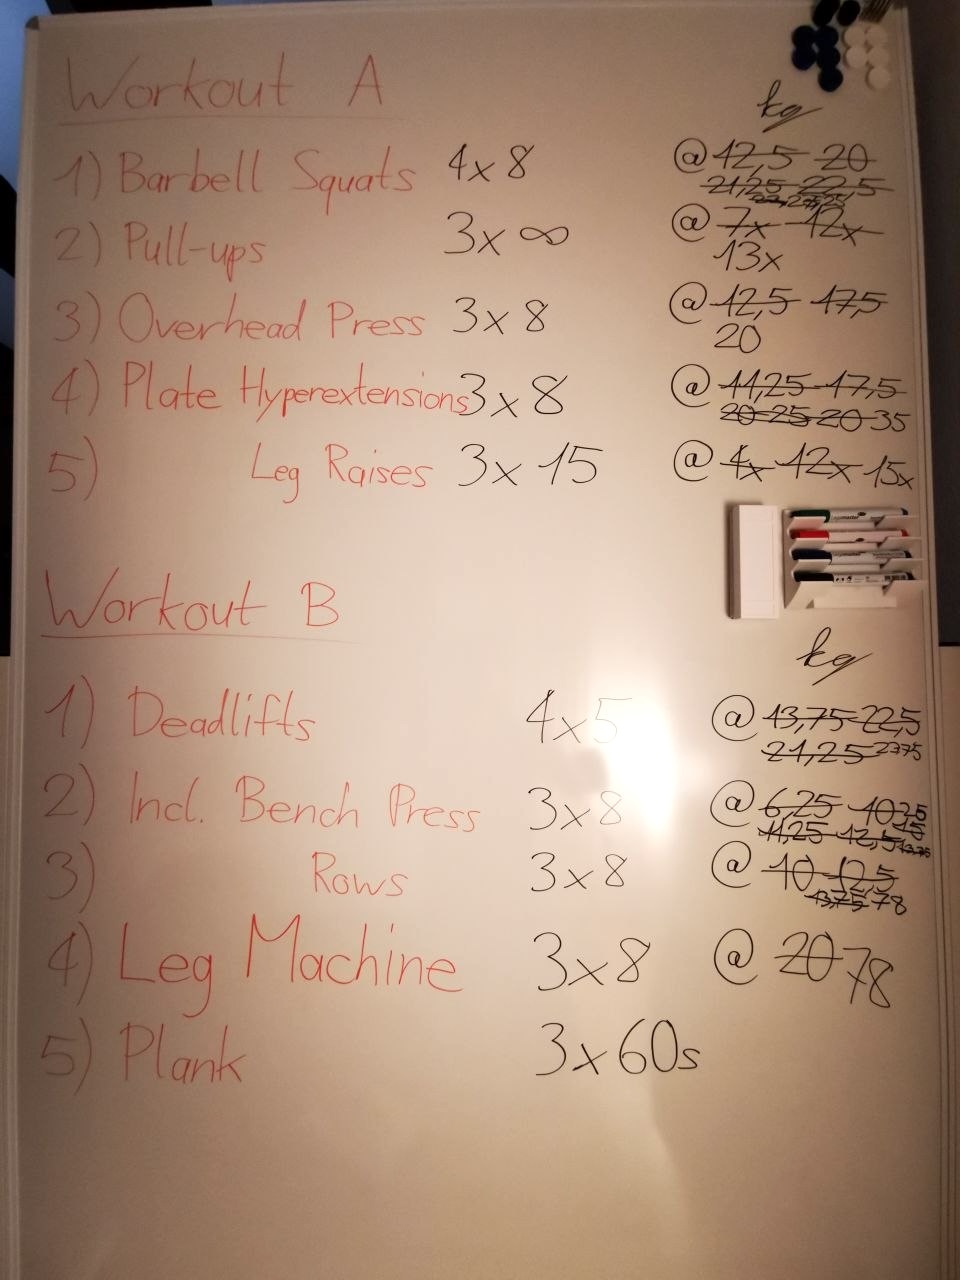 Workout A
kg
1) Barbell Squats 4x8 @ 12,5 20
21,25 22,5
2) Pull-ups 3x ∞ @ 7x 12x
13x
3) Overhead Press 3x8 @ 12,5 17,5
20
4) Plate Hyperextensions 3x8 @ 11,25 17,5
20 25 20 35
5) Leg Raises 3x15 @ 4x 12x 15x
Workout B
kg
1) Deadlifts 4x5 @ 13,75 22,5
21,25 23,75
2) Incl. Bench Press 3x8 @ 6,25 10
11,25 12,5 13,75
3) Rows 3x8 @ 10 12,5
13,75 78
4) Leg Machine 3x8 @ 20 78
5) Plank 3x60s